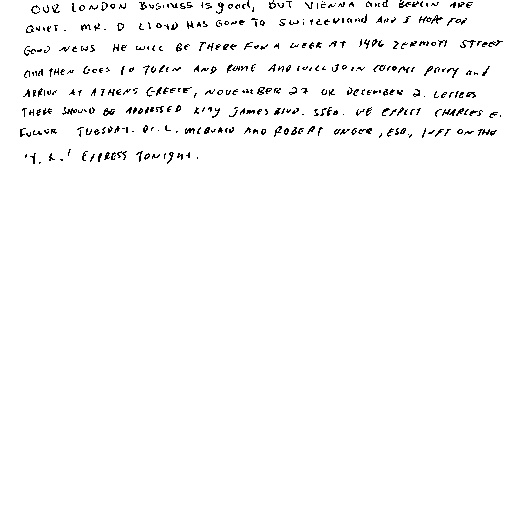 OUR LONDON Business is good, BUT VIENNA and BERLIN ARE
QUIET. MR. D LLOYD HAS GONE TO SWITZERLAND AND I HOPE FOR
GOOD NEWS HE WILL BE THERE FOR A WEEK AT 1496 ZERMOTT STREET
and THEN GOES TO TURIN AND ROME AND WILL JOIN COLONEL Parry and
ARRIVE AT ATHENS GREECE, NOVEMBER 27 OR DECEMBER 2. LETTERS
THERE SHOULD BE ADDRESSED KING JAMES BLVD. 3580. WE EXPECT CHARLES E.
FULLER TUESDAY. Dr. L. MCQUAID AND ROBERT UNGER, ESQ., LEFT ON THE
'Y. X.' EXPRESS TONIGHT.